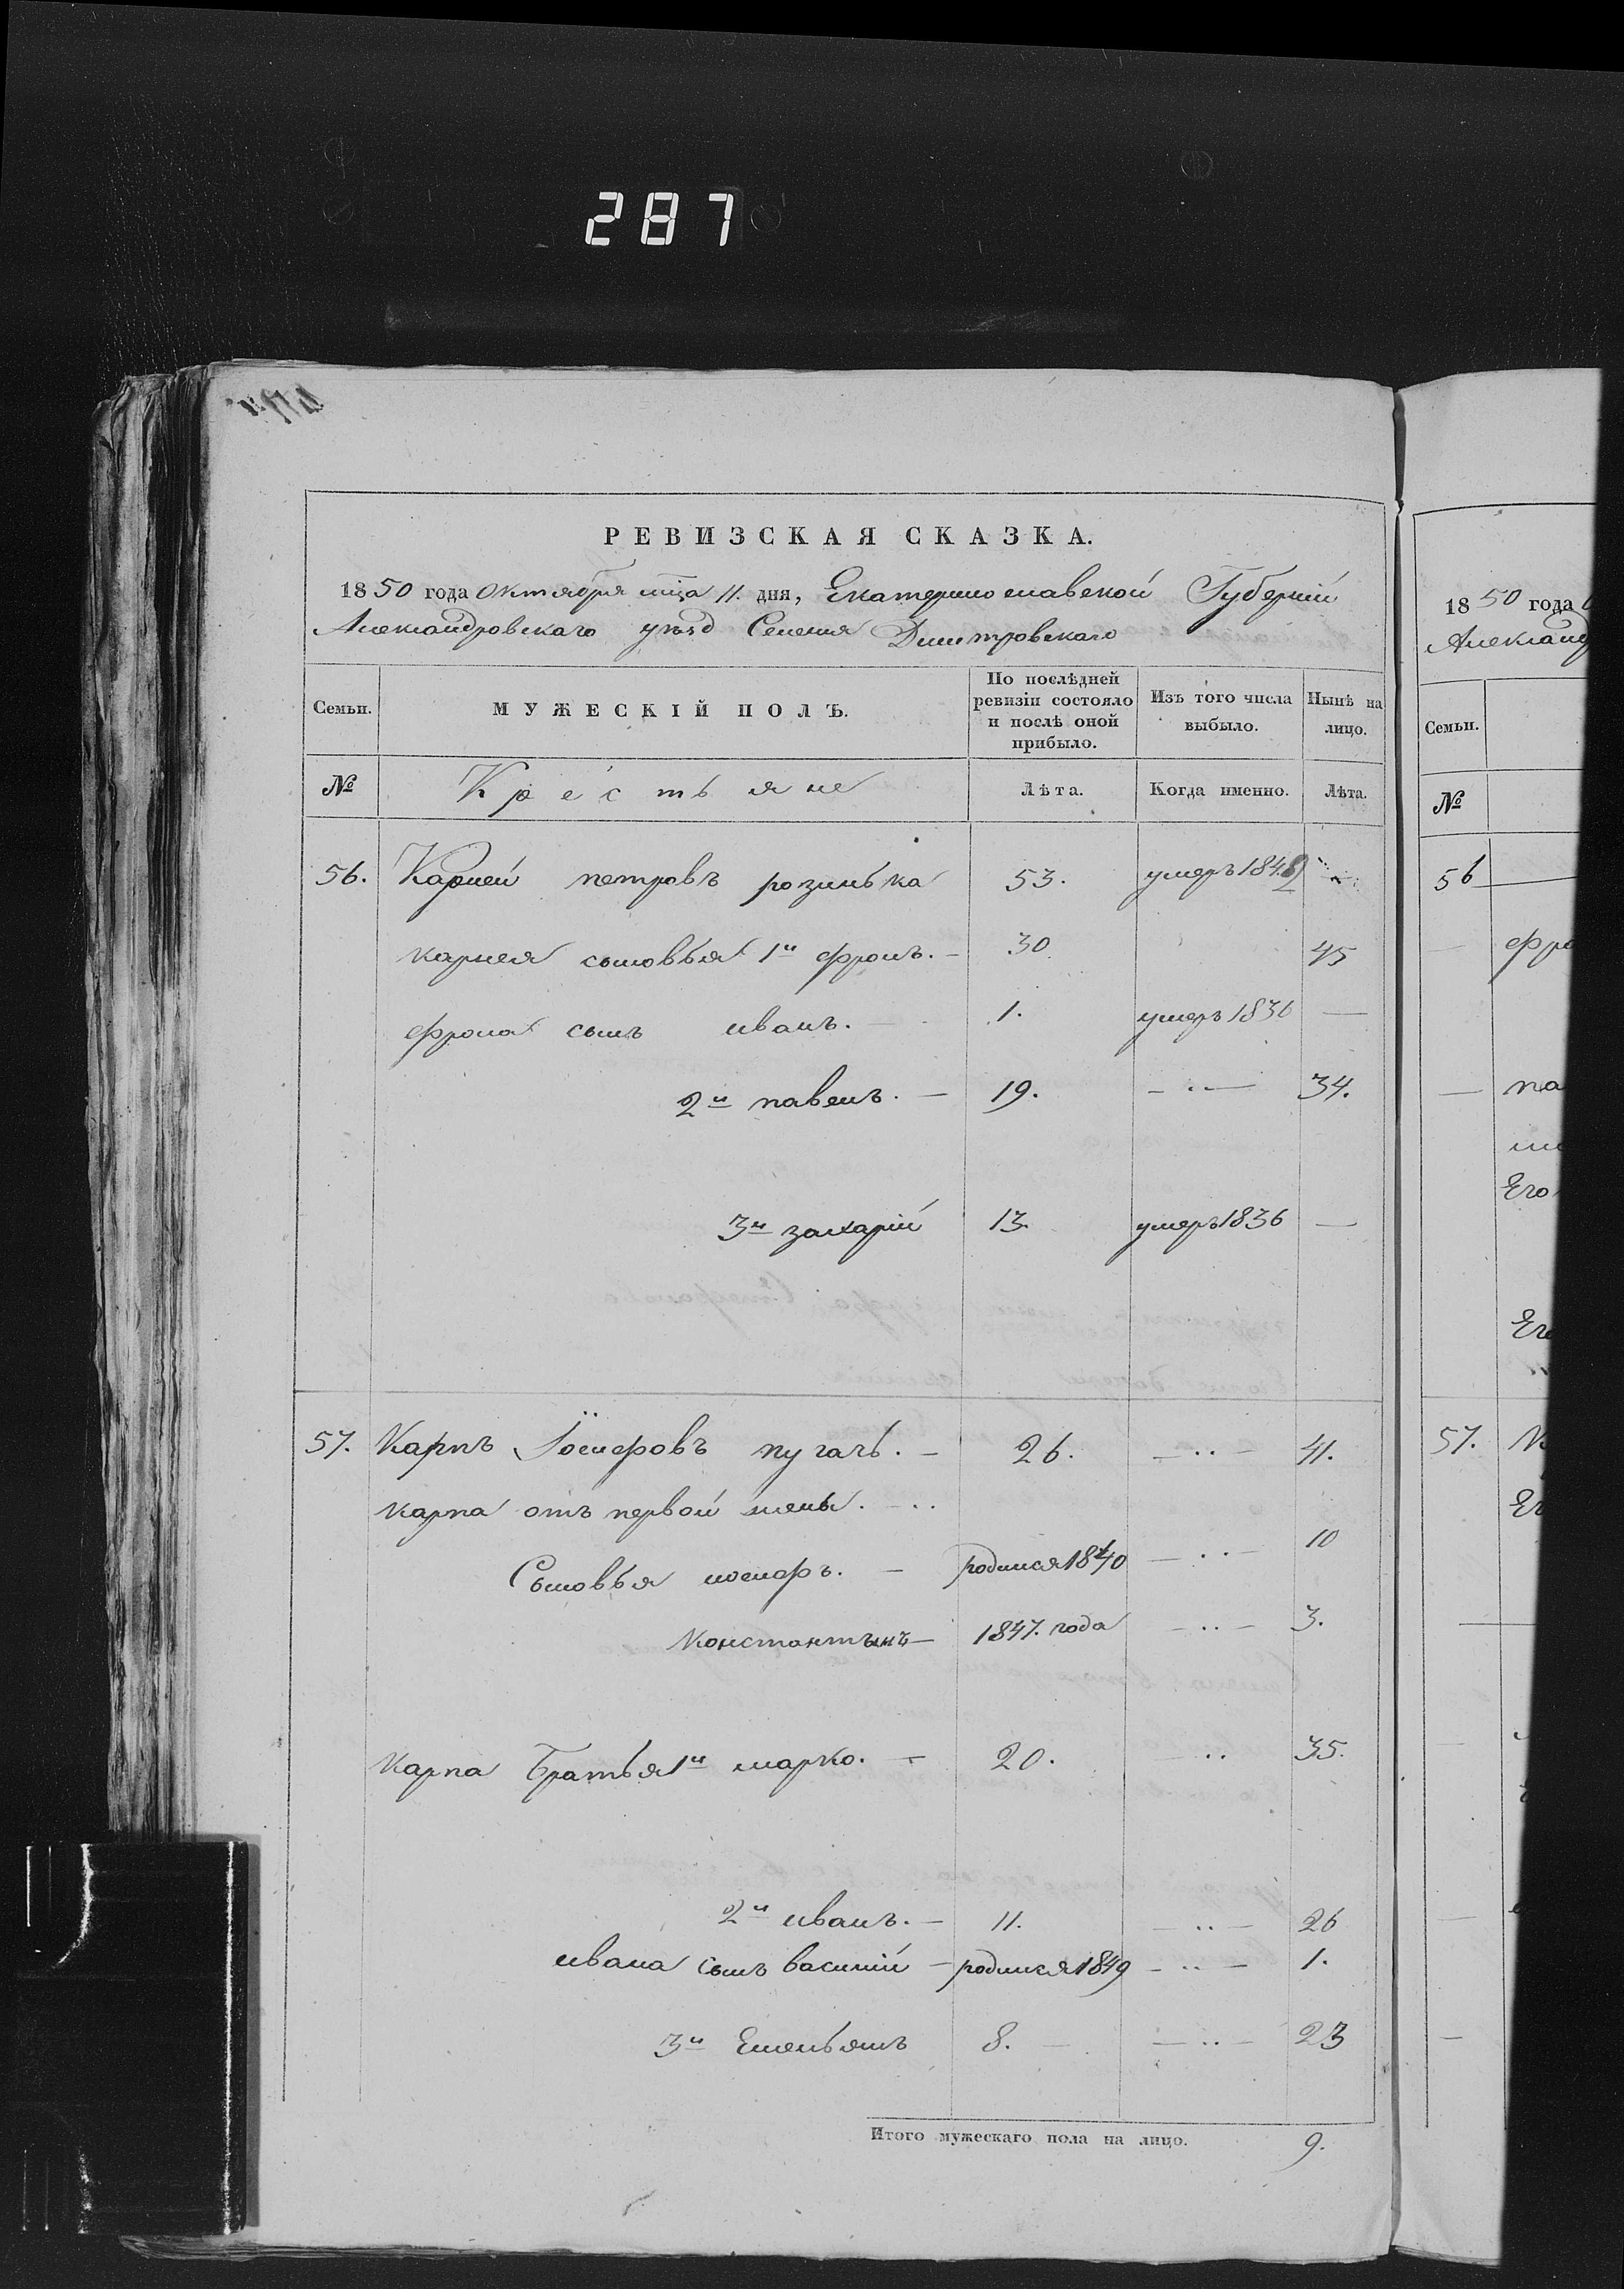 287
РЕВИЗСКАЯ СКАЗКА.
1850 года Октября мца 11. дня, Екатеринославской Губерніи
Александровскаго уѣзд Селенія Дмитровскаго
Семьи.
МУЖЕСКІЙ ПОЛЪ.
По послѣдней ревизіи состояло и послѣ оной прибыло.
Изъ того числа выбыло.
Нынѣ на лицо.
№ Крестьяне Лѣта. Когда именно. Лѣта.
56. Карней петровъ розинька 53. умеръ 1849 —
карнея сыновья 1й фролъ. — 30 45
фрола сынъ иванъ. 1. умеръ 1836 —
2й павелъ. — 19. — " — 34.
3й захарій 13. умеръ 1836 —
57. Карпъ Іосифовъ пугачь. — 26. — " — 41.
Карпа отъ первой жены. — ..
Сыновья иосифъ. — родился 1840 — " — 10
Константынъ — 1847. года — " — 3.
Карпа Братья 1й марко. — 20. " 35.
2й иванъ. — 11. — " — 26
ивана сынъ василій — родился 1849 — " — 1.
3й Емельянъ 8. — " — 23
Итого мужескаго пола на лицо. 9.
1850 года
Александ
Семьи.
№
56
фро
па
Его
57.